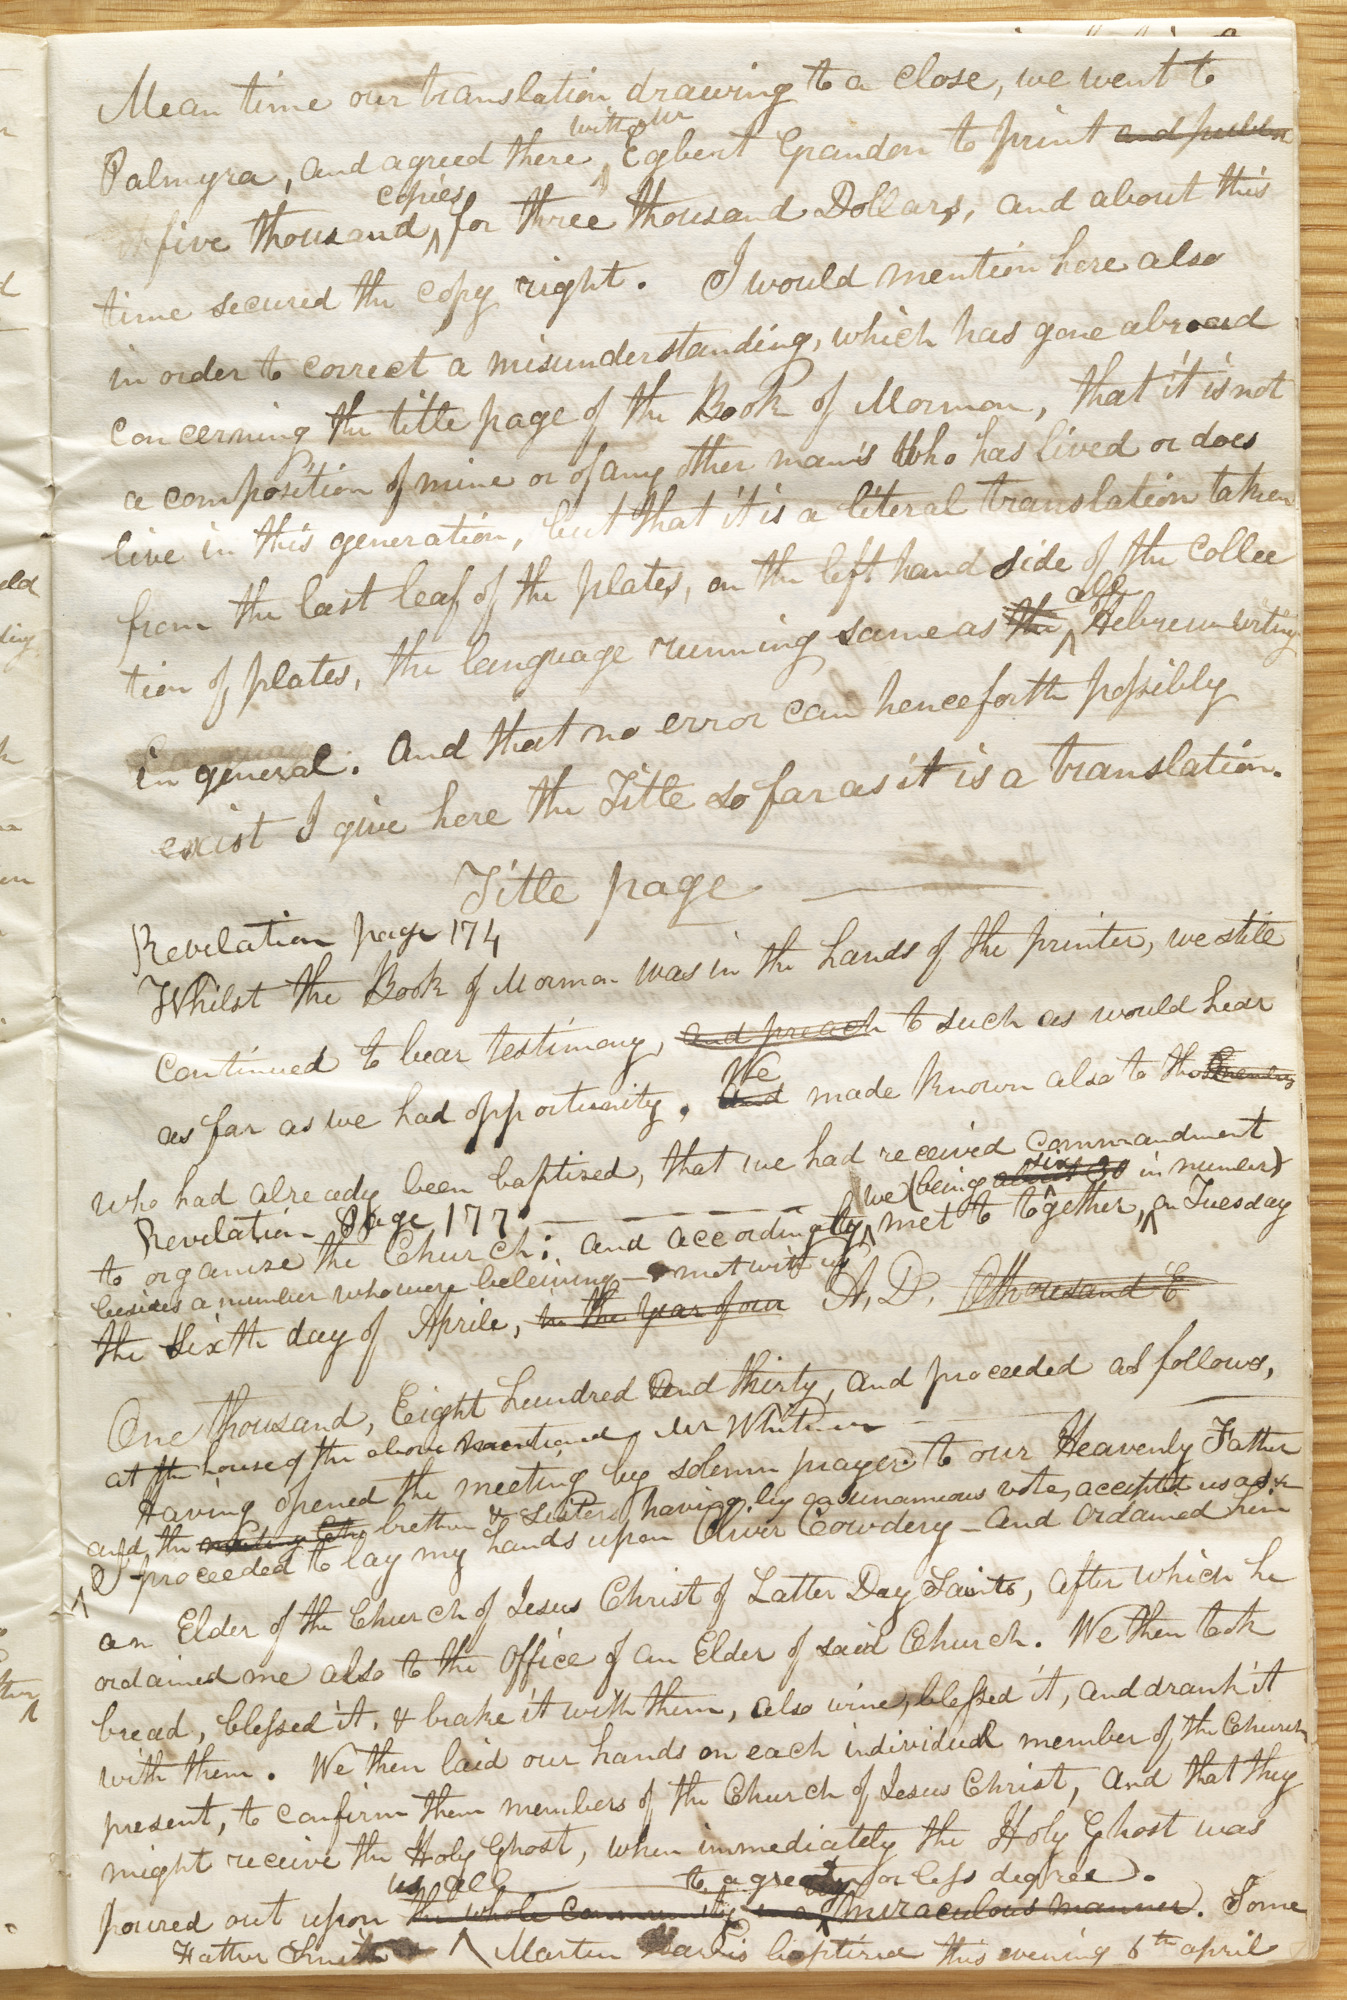 Mean time our translation drawing to a close, we went to
Palmyra, and agreed there with Mr Egbert Grandon to print and publish
five thousand copies, for three thousand Dollars, and about this
time secured the copy right. I would mention here also
in order to correct a misunderstanding, which has gone abroad
concerning the title page of the Book of Mormon, that it is not
a composition of mine or of any other man's who has lived or does
live in this generation, but that it is a literal translation taken
from the last leaf of the plates, on the left hand side of the collec
tion of plates, the language running same as the all Hebrew writing
in general. And that no error can henceforth possibly
exist I give here the Title so far as it is a translation.
Title page
Revelation page 174
Whilst the Book of Mormon was in the hands of the printer, we still
continued to bear testimony, and preach to such as would hear
as far as we had opportunity. And We made known also to those members
who had already been baptised, that we had received commandment
Revelation Page 177.
to organize the Church: and accordingly we (being about 30 six in number) met to together, on Tuesday
besides a number who were beleiving — met with us
the sixth day of Aprile, in the year of our A, D, One thousand E
One thousand, Eight hundred and thirty, and proceeded as follows,
at the house of the above mentioned Mr Whitmer
Having opened the meeting by solemn prayer to our Heavenly Father
and the meeting brethren & sisters having by a unanimous vote, accepted us as &c
I proceeded to lay my hands upon Oliver Cowdery — and ordained him
an Elder of the Church of Jesus Christ of Latter Day Saints, after which he
ordained me also to the office of an Elder of said Church. We then took
bread, blessed it, & brake it with them, also wine, blessed it, and drank it
with them. We then laid our hands on each individual member of the Church
present, to confirm them members of the Church of Jesus Christ, and that they
might receive the Holy Ghost, when immediately the Holy Ghost was
us all to a greater or less degree.
poured out upon the whole community in a miraculous manner. Some
Father Smith Martin Harris baptized this evening 6th april